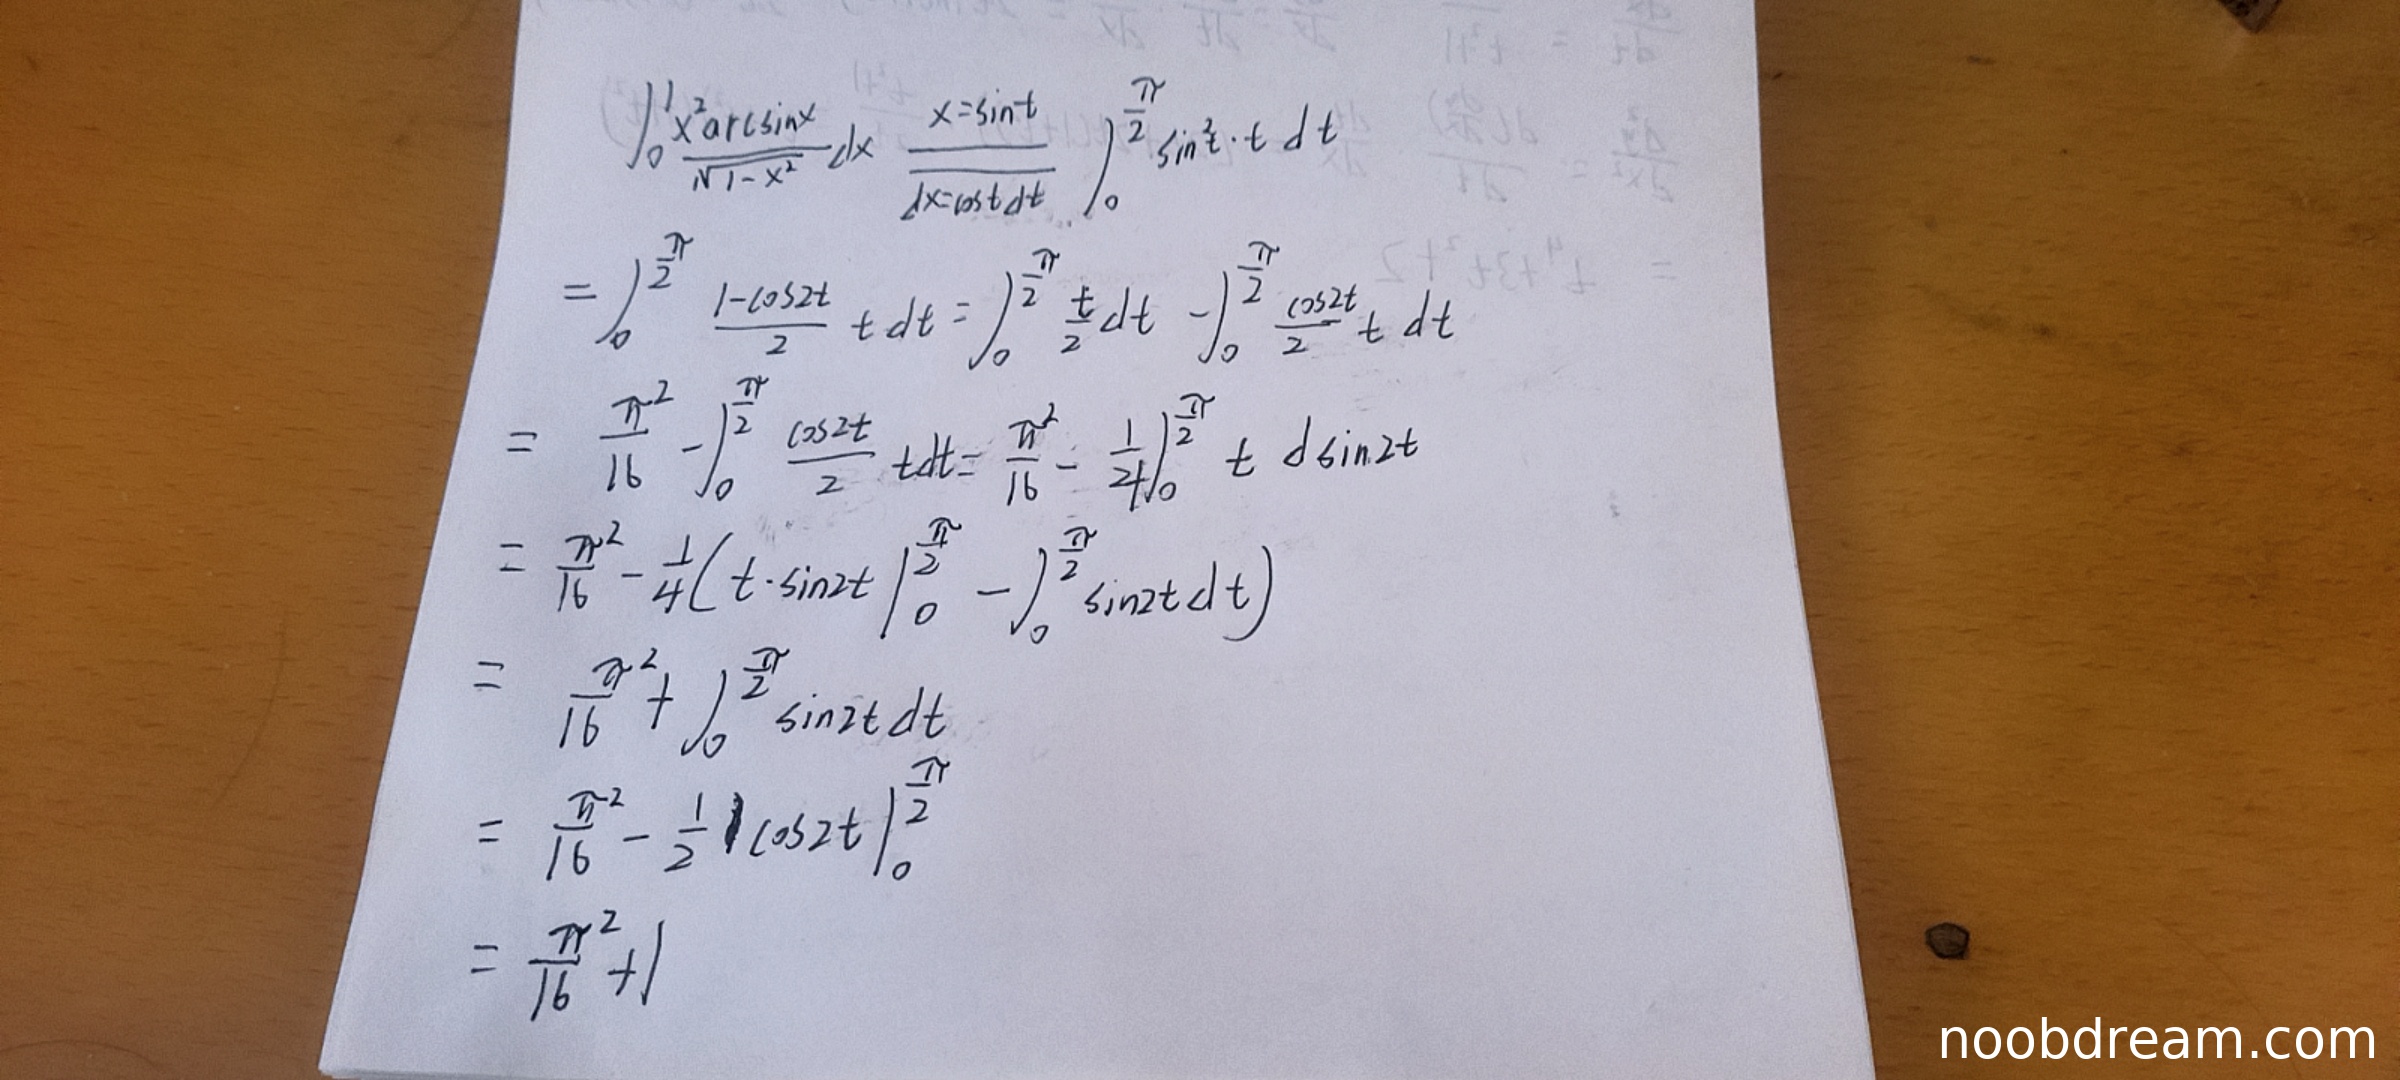 ∫₀¹ x² arcsinx / √(1-x²) dx  x=sint  dx=costdt  ∫₀^(π/2) sin²t · t dt
= ∫₀^(π/2) (1-cos2t)/2 t dt = ∫₀^(π/2) t/2 dt - ∫₀^(π/2) cos2t/2 t dt
= π²/16 - ∫₀^(π/2) cos2t/2 t dt = π²/16 - 1/4 ∫₀^(π/2) t dsin2t
= π²/16 - 1/4 ( t·sin2t |₀^(π/2) - ∫₀^(π/2) sin2t dt )
= π²/16 + ∫₀^(π/2) sin2t dt
= π²/16 - 1/2 cos2t |₀^(π/2)
= π²/16 + 1
noobdream.com